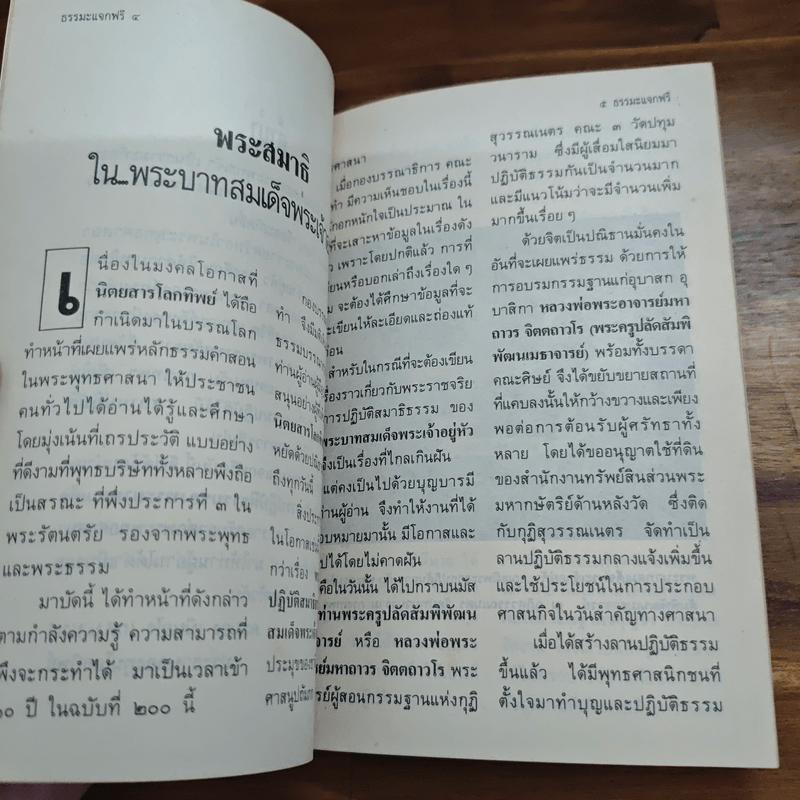 ธรรมะแจกฟรี ๔
พระสมาธิ
ใน...พระบาทสมเด็จพระเจ้า
เนื่องในมงคลโอกาสที่
นิตยสารโลกทิพย์ ได้ถือ
กำเนิดมาในบรรณโลก
ทำหน้าที่เผยแพร่หลักธรรมคำสอน
ในพระพุทธศาสนา ให้ประชาชน
คนทั่วไปได้อ่านได้รู้และศึกษา
โดยมุ่งเน้นที่เถรประวัติ แบบอย่าง
ที่ดีงามที่พุทธบริษัททั้งหลายพึงถือ
เป็นสรณะ ที่พึ่งประการที่ ๓ ใน
พระรัตนตรัย รองจากพระพุทธ
และพระธรรม
มาบัดนี้ ได้ทำหน้าที่ดังกล่าว
ตามกำลังความรู้ ความสามารถที่
พึงจะกระทำได้ มาเป็นเวลาเข้า
ปี ในฉบับที่ ๒๐๐ นี้
ทำ จึงมี
ธรรมบรรณา
ท่านผู้อ่านผู้
สนุนอย่างดี
นิตยสารโลก
หยัดด้วยปณิ
ถึงทุกวันนี้
สิ่งประ
ในโอกาส
กว่าเรื่อง
ปฏิบัติสมาธิ
สมเด็จพระเ
ประมุขของ
ศาสนูปถัมภ
๕ ธรรมะแจกฟรี
ศาสนา
เมื่อกองบรรณาธิการ คณะ
ทำ มีความเห็นชอบในเรื่องนี้
กอกหนักใจเป็นประมาณ ใน
ที่จะเสาะหาข้อมูลในเรื่องดัง
ว เพราะโดยปกติแล้ว การที่
ยนหรือบอกเล่าถึงเรื่องใด ๆ
ม จะต้องได้ศึกษาข้อมูลที่จะ
ะเขียนให้ละเอียดและถ่องแท้
่อน
สำหรับในกรณีที่จะต้องเขียน
รื่องราวเกี่ยวกับพระราชจริย
การปฏิบัติสมาธิธรรม ของ
พระบาทสมเด็จพระเจ้าอยู่หัว
จึงเป็นเรื่องที่ไกลเกินฝัน
แต่คงเป็นไปด้วยบุญบารมี
่านผู้อ่าน จึงทำให้งานที่ได้
อบหมายมานั้น มีโอกาสและ
ปได้โดยไม่คาดฝัน
คือในวันนั้น ได้ไปกราบนมัส
ท่านพระครูปลัดสัมพิพัฒน
จารย์ หรือ หลวงพ่อพระ
ย์มหาถาวร จิตตถาวโร พระ
รย์ผู้สอนกรรมฐานแห่งกุฏิ
สุวรรณเนตร คณะ ๓ วัดปทุม
วนาราม ซึ่งมีผู้เลื่อมใสนิยมมา
ปฏิบัติธรรมกันเป็นจำนวนมาก
และมีแนวโน้มว่าจะมีจำนวนเพิ่ม
มากขึ้นเรื่อย ๆ
ด้วยจิตเป็นปณิธานมั่นคงใน
อันที่จะเผยแพร่ธรรม ด้วยการให้
การอบรมกรรมฐานแก่อุบาสก อุ
บาสิกา หลวงพ่อพระอาจารย์มหา
ถาวร จิตตถาวโร (พระครูปลัดสัมพิ
พัฒนเมธาจารย์) พร้อมทั้งบรรดา
คณะศิษย์ จึงได้ขยับขยายสถานที่
ที่แคบลงนั้นให้กว้างขวางและเพียง
พอต่อการต้อนรับผู้ศรัทธาทั้ง
หลาย โดยได้ขออนุญาตใช้ที่ดิน
ของสำนักงานทรัพย์สินส่วนพระ
มหากษัตริย์ด้านหลังวัด ซึ่งติด
กับกุฏิสุวรรณเนตร จัดทำเป็น
ลานปฏิบัติธรรมกลางแจ้งเพิ่มขึ้น
และใช้ประโยชน์ในการประกอบ
ศาสนกิจในวันสำคัญทางศาสนา
เมื่อได้สร้างลานปฏิบัติธรรม
ขึ้นแล้ว ได้มีพุทธศาสนิกชนที่
ตั้งใจมาทำบุญและปฏิบัติธรรม